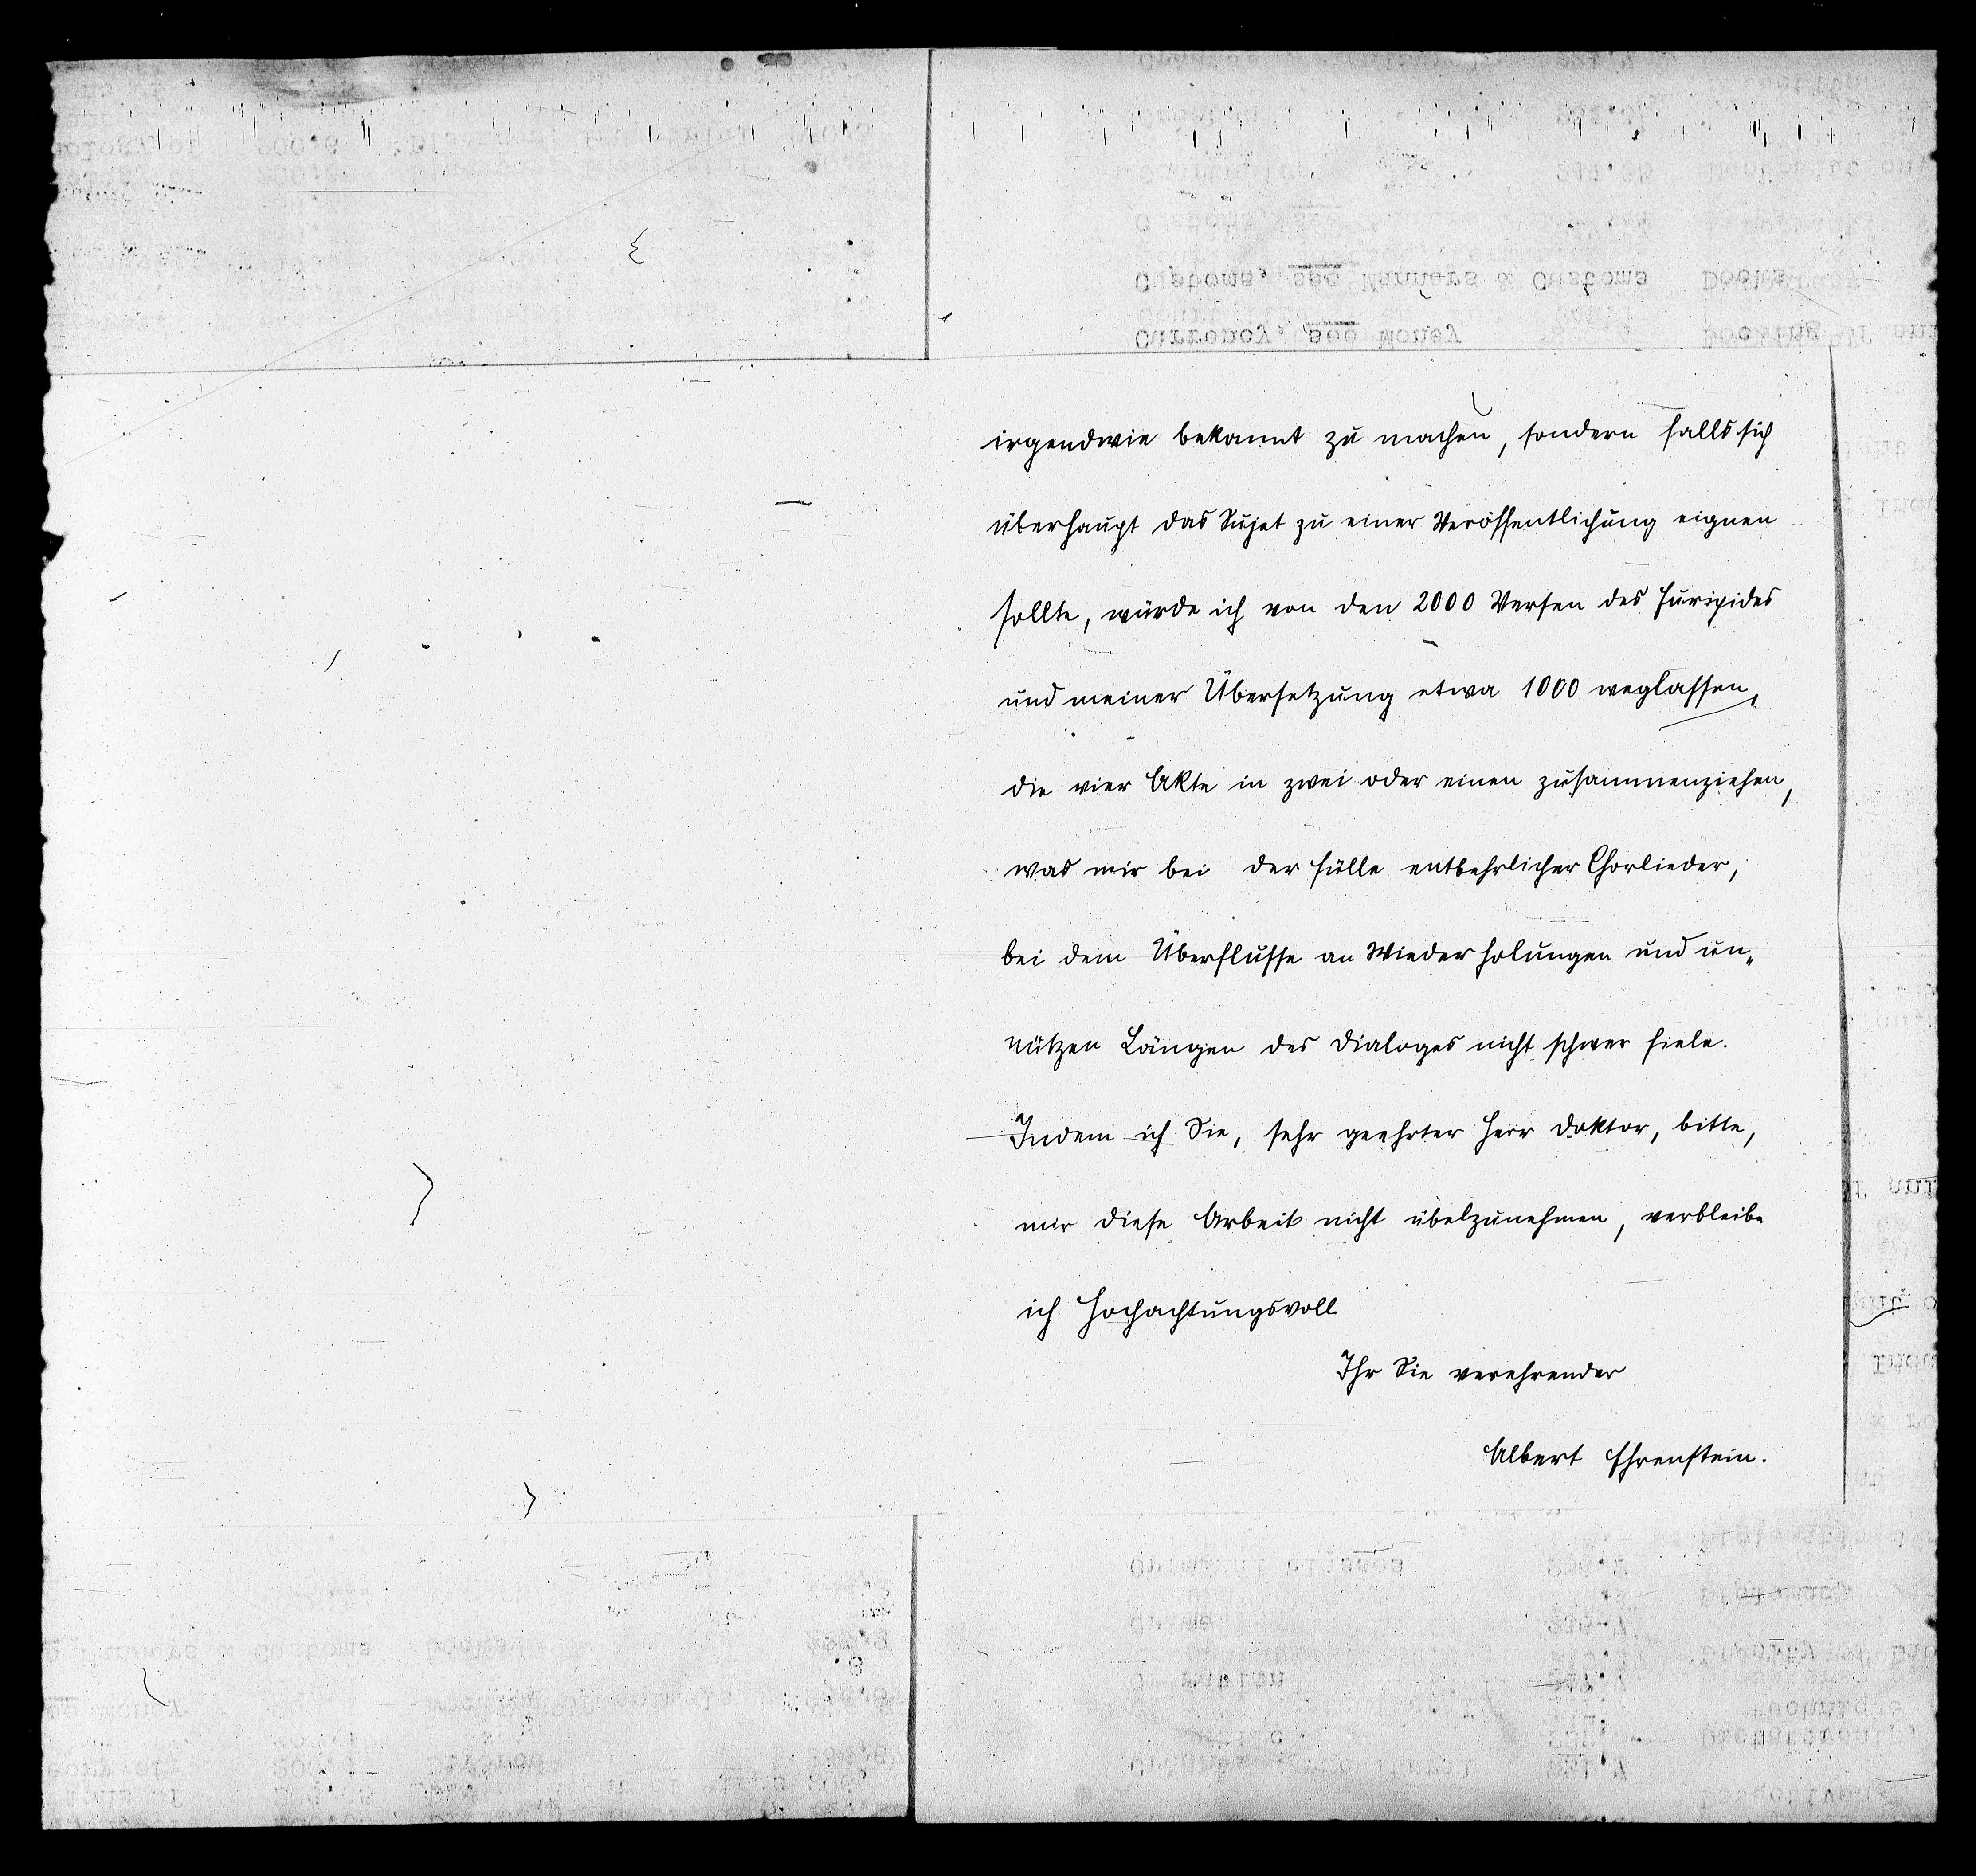 irgendwie bekannt zu machen, sondern falls sich
überhaupt das Sujet zu einer Veröffentlichung eignen
sollte, würde ich von den 2000 Versen des Euripides
und meiner Übersetzung etwa 1000 weglassen,
die vier Akte in zwei oder einen zusammenziehen,
was mir bei der Fülle entbehrlicher Chorlieder,
bei dem Überflusse an Wiederholungen und un„
nützen Längen des Dialoges nicht schwer fiele.
Indem ich Sie, sehr geehrter Herr Doktor, bitte,
mir diese Arbeit nicht übelzunehmen, verbleibe
ich Hochachtungsvoll
Ihr Sie verehrender
Albert Ehrenstein.
Customs, see Manners & Customs
Currency, see Money